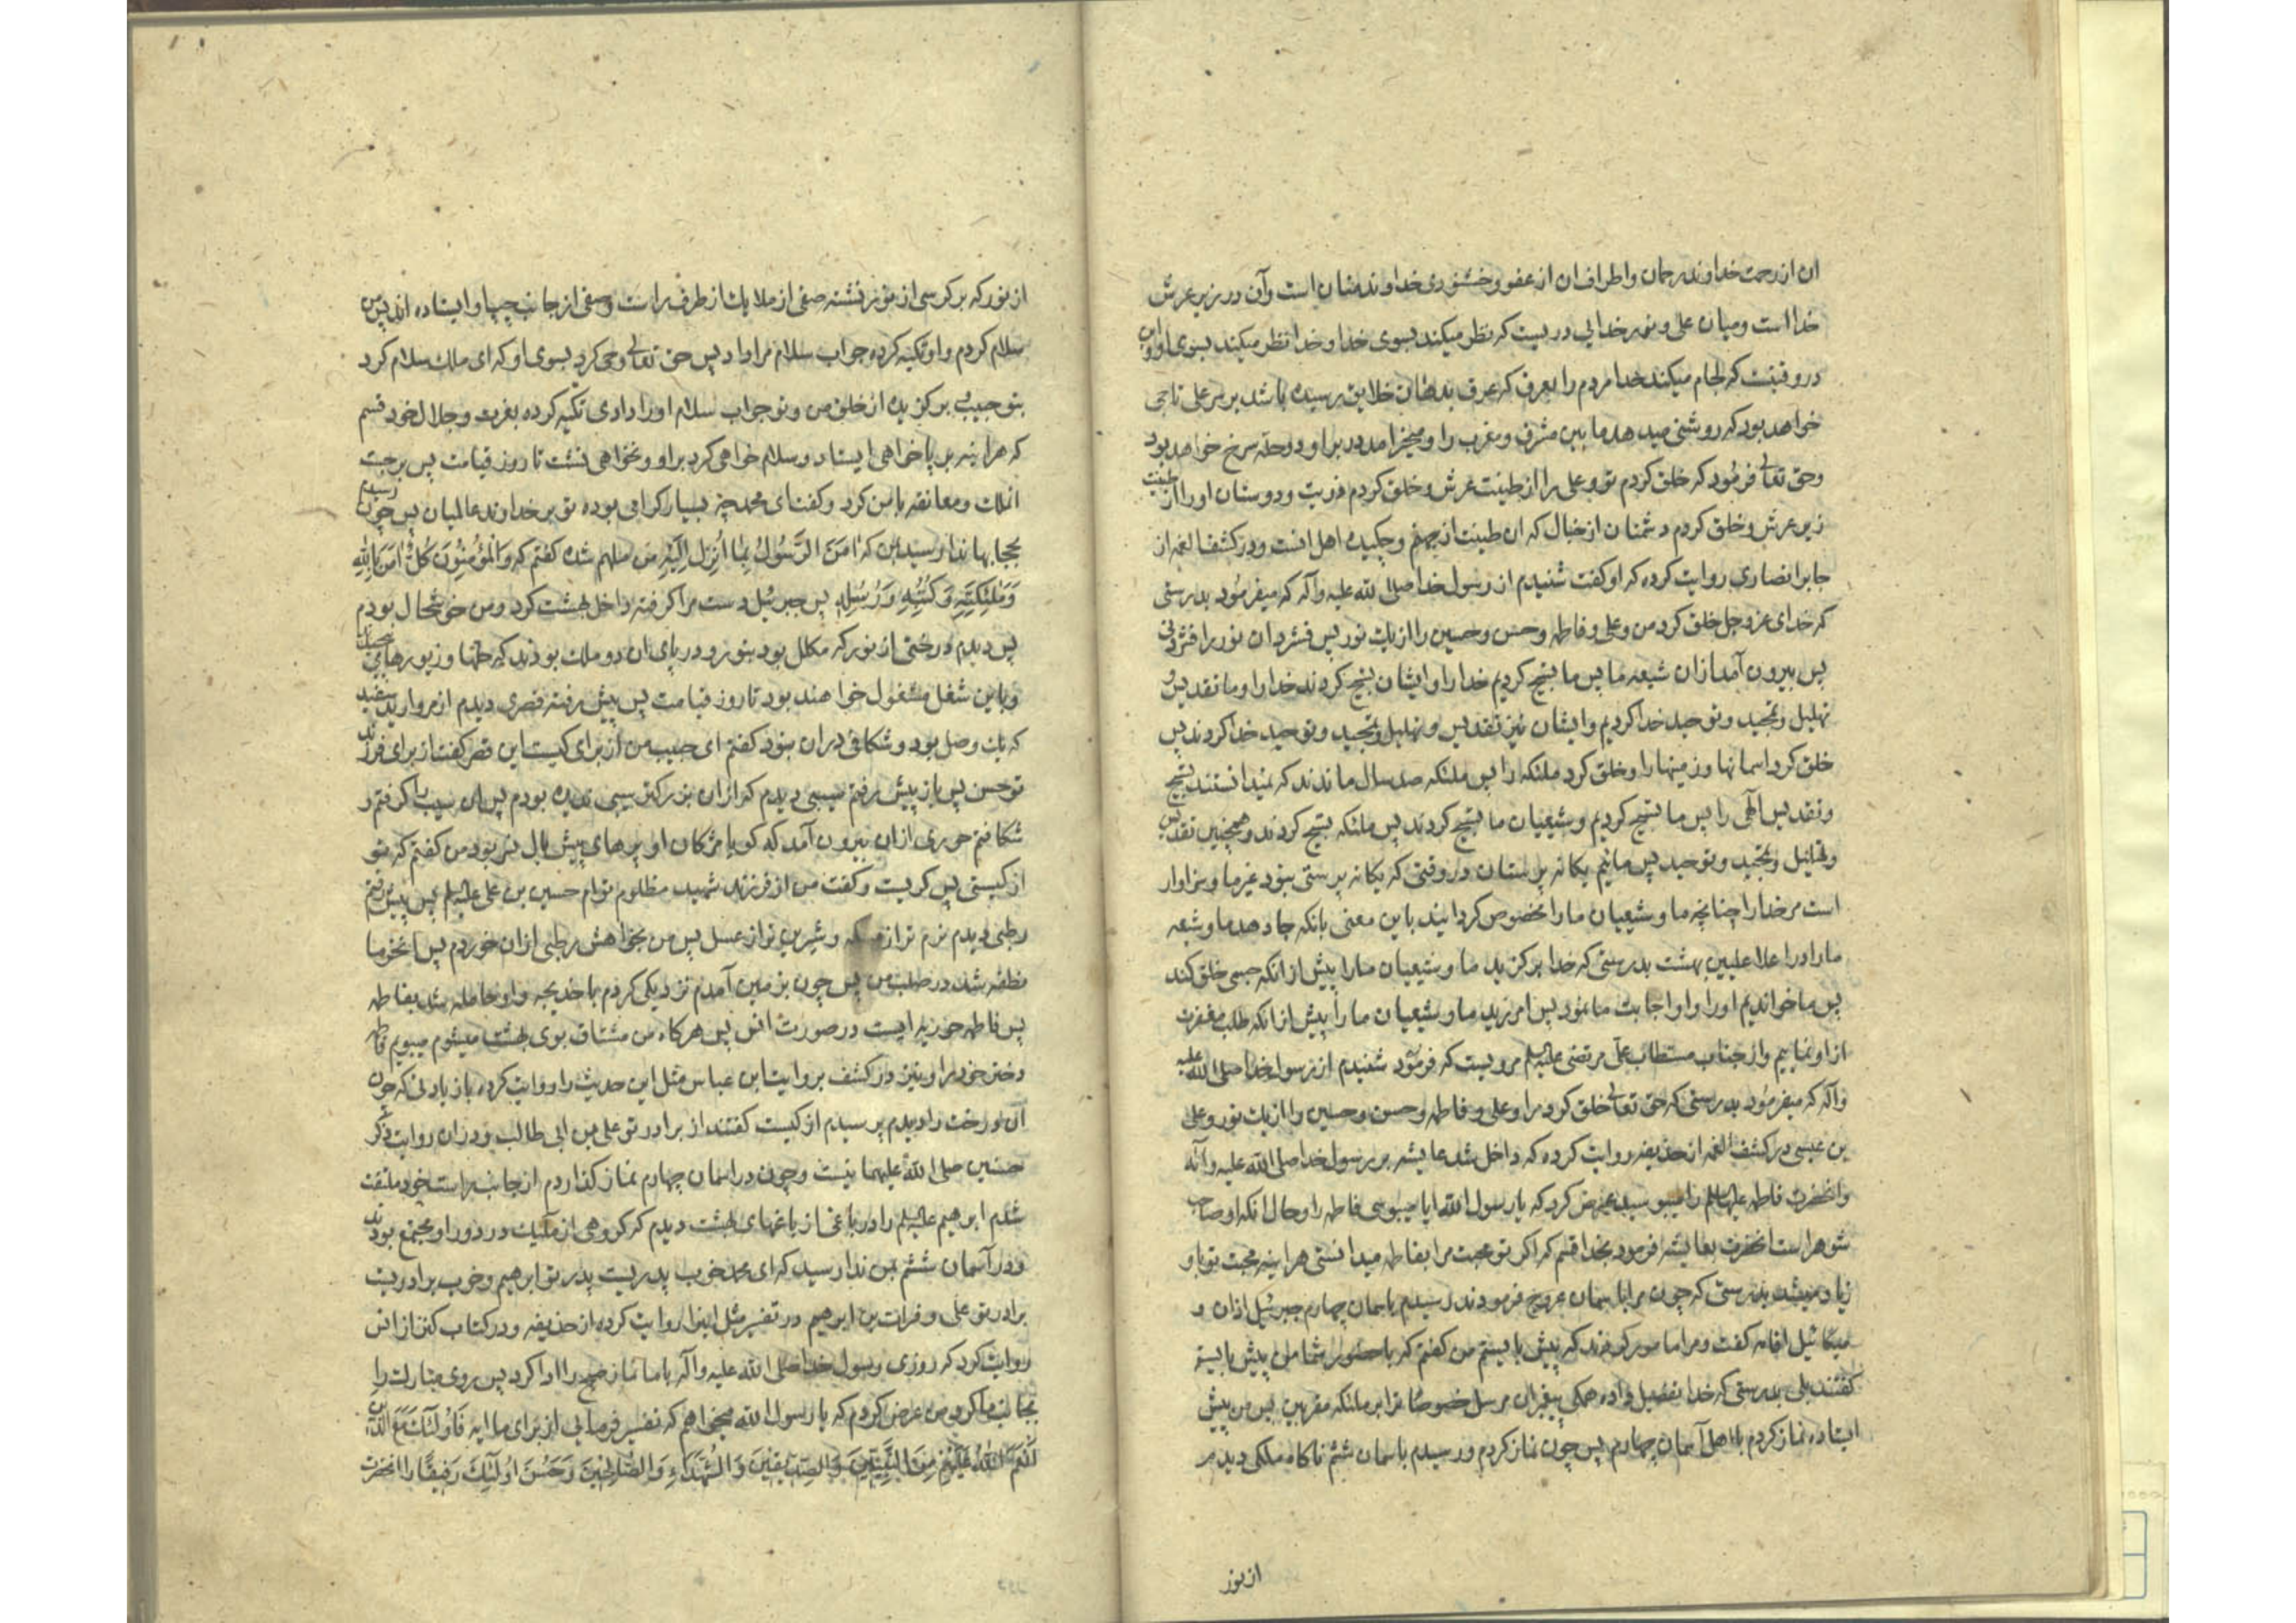 ان از رحمت خداوند رحمان و اطراف ان از عفو و خشنودی خداوند منان است و آن در زیر عرش
خدا است و میان علی و نور خدایی دریست که نظر میکند بسوی خدا و خدا نظر میکند بسوی او و این
در وقتیست که لجام میکند خدا مردم را بعرق که عرق بدهان خلایق رسیده باشد بر سر علی تاجی
خواهد بود که روشنی میدهد ما بین مشرق و مغرب را و میخرامد در براو دو حله سرخ خواهد بود
و حق تعالی فرمود که خلق کردم تو و علی را از طینت عرش و خلق کردم ذریت و دوستان او را از طینت
زیر عرش و خلق کردم دشمنان از خبال که ان طینت از جهنم و چکیده اهل انست و در کشف الغمه از
جابر انصاری روایت کرده که او گفت شنیدم از رسول خدا صلی الله علیه و آله که میفرمود بدرستی
که خدای عز و جل خلق کرد من و علی و فاطمه و حسن و حسین را از یک نور پس فشرد ان نور را فشردنی
پس بیرون آمد از ان شیعه ما پس ما تسبیح کردیم خدا را و ایشان تسبیح کردند خدا را و ما تقدیس و
تهلیل و تمجید و توحید خدا کردیم و ایشان نیز تقدیس و تهلیل و تمجید و توحید خدا کردند پس
خلق کرد اسمانها و زمینها را و خلق کرد ملئکه را پس ملئکه صد سال ماندند که نمیدانستند تسبیح
و تقدیس الهی را پس ما تسبیح کردیم و شیعیان ما تسبیح کردند پس ملئکه تسبیح کردند و همچنین تقدیس
و تهلیل و تمجید و توحید پس مائیم یکانه پرستان در وقتی که یکانه پرستی نبود غیر ما و سزاوار
است مر خدا را چنانچه ما و شیعیان ما را مخصوص کردانید باین معنی بانکه جا دهد ما و شیعه
ما را در اعلا علیین بهشت بدرستی که خدا برکزید ما و شیعیان ما را پیش از انکه جسمی خلق کند
پس ما خواندیم او را و او اجابت ما نمود پس امرزید ما و شیعیان ما را پیش از انکه طلب مغفرت
از او نماییم و از جناب مستطاب علی مرتضی علیه السلام مرویست که فرمود شنیدم از رسول خدا صلی الله علیه
و آله که میفرمود بدرستی که حق تعالی خلق کرد مرا و علی و فاطمه و حسن و حسین را از یک نور و علی
بن عیسی در کشف الغمه از حذیفه روایت کرده که داخل شد عایشه بر رسول خدا صلی الله علیه و آله
و انحضرت فاطمه علیها السلام را میبوسید عرض کرد که یا رسول الله ایا میبوسی فاطمه را و حال انکه او صاحب
شوهر است انحضرت بعایشه فرمود بخدا قسم که اکر تو محبت مرا بفاطمه میدانستی هراینه محبت تو باو
زیاد میشد بدرستی که چون مرا باسمان عروج فرمودند رسیدم باسمان چهارم جبرئیل اذان و
میکائیل اقامه گفت و مرا مامور کردند که پیش بایستم من گفتم که با حضور شما من پیش بایستم
گفتند بلی بدرستی که خدا تفضیل داده همکی پیغبران مرسل خصوصا ترا بر ملئکه مقربین پس من پیش
ایستاده نماز کردم با اهل آسمان چهارم پس چون نماز کردم و رسیدم باسمان ششم ناکاه ملکی دیدم
از نور
از نور که بر کرسی از نور نشسته صفی از ملایک از طرف راست و صفی از جانب چپ او ایستاده اند پس من
سلام کردم و او تکیه کرده جواب سلام مرا داد پس حق تعالی وحی کرد بسوی او که ای ملک سلام کرد
بتو حبیب برکزیده از خلق من و تو جواب سلام او را دادی تکیه کرده بعزت و جلال خود قسم
که هراینه بر پا خواهی ایستاد و سلام خواهی کرد بر او و نخواهی نشست تا روز قیامت پس برجست
انملک و معانقه با من کرد و گفت ای محمد چه بسیار کرامی بوده تو بر خداوند عالمیان پس چون رسیدم
بحجابها ندا رسید بمن که امَنَ الرَّسُولُ بِمٰا اُنْزِلَ اِلَیْهِ من ملهم شده گفتم که وَالْمُؤْمِنُونَ كُلٌّ اٰمَنَ بِاللهِ
وَمَلٰئِكَتِهِ وَكُتُبِهِ وَرُسُلِهِ پس جبرئیل دست مرا گرفته داخل بهشت کرد و من خوشحال بودم
پس دیدم درختی از نور که مکلل بود بنور و در پای ان دو ملک بودند که حلها و زیورهای
و باین شغل مشغول خواهند بود تا روز قیامت پس پیش رفته قصری دیدم از مروارید سفید
که یک وصل بود و شکافی در ان نبود گفتم ای حبیب من از برای کیست این قصر گفت از برای فرزند
تو حسن پس باز پیش رفتم سیبی دیدم که از ان بزرکتر سیبی ندیده بودم پس ان سیب را کرفتم و
شکافتم حوری از ان بیرون آمد که کویا مژکان او پرهای پیش بال نسر بود من گفتم که تو
از کیستی پس کریست و گفت من از فرزند شهید مظلوم توام حسین بن علی علیه السلام پس پیش رفتم
رطبی دیدم نرم تر از مسکه و شیرین تر از عسل پس من بخواهش رطبی از ان خوردم پس ان خرما
نطفه شد در صلب من پس چون بزمین آمدم نزدیکی کردم با خدیجه و او حامله شد بفاطمه
پس فاطمه حوریه ایست در صورت انس پس هرکاه من مشتاق بوی بهشت میشوم میبویم فاطمه
دختر خود را و نیز در کشف بروایت ابن عباس مثل این حدیث را روایت کرده با زیادتی که چون
آن درخت را دیدم پرسیدم از کیست گفتند از برادر تو علی بن ابی طالب و در ان روایت ذکر
حسنین صلی الله علیهما نیست و چون در اسمان چهارم نماز کذاردم از جانب راست خود ملتفت
شدم ابرهیم علیه السلام را در باغی از باغهای بهشت دیدم که کروهی از ملئیک در دور او مجتمع بودند
و در آسمان ششم بمن ندا رسید که ای محمد خوب پدریست پدر تو ابرهیم و خوب برادریست
برادر تو علی و فرات بن ابرهیم در تفسیر مثل اینرا روایت کرده از حذیفه و در کتاب کنز از انس
روایت کرد که روزی رسول خدا صلی الله علیه و آله با ما نماز صبح را ادا کرد پس روی مبارک را
بجانب ما کرد من عرض کردم که یا رسول الله میخواهم که تفسیر فرمایی از برای ما ایه فَاُولٰئِكَ مَعَ الَّذِينَ
اَنْعَمَ اللهُ عَلَيْهِمْ مِنَ النَّبِيِّينَ وَالصِّدِّيقِينَ وَالشُّهَدٰاءِ وَالصّٰالِحِينَ وَحَسُنَ اُولٰئِكَ رَفِيقًا را انحضرت